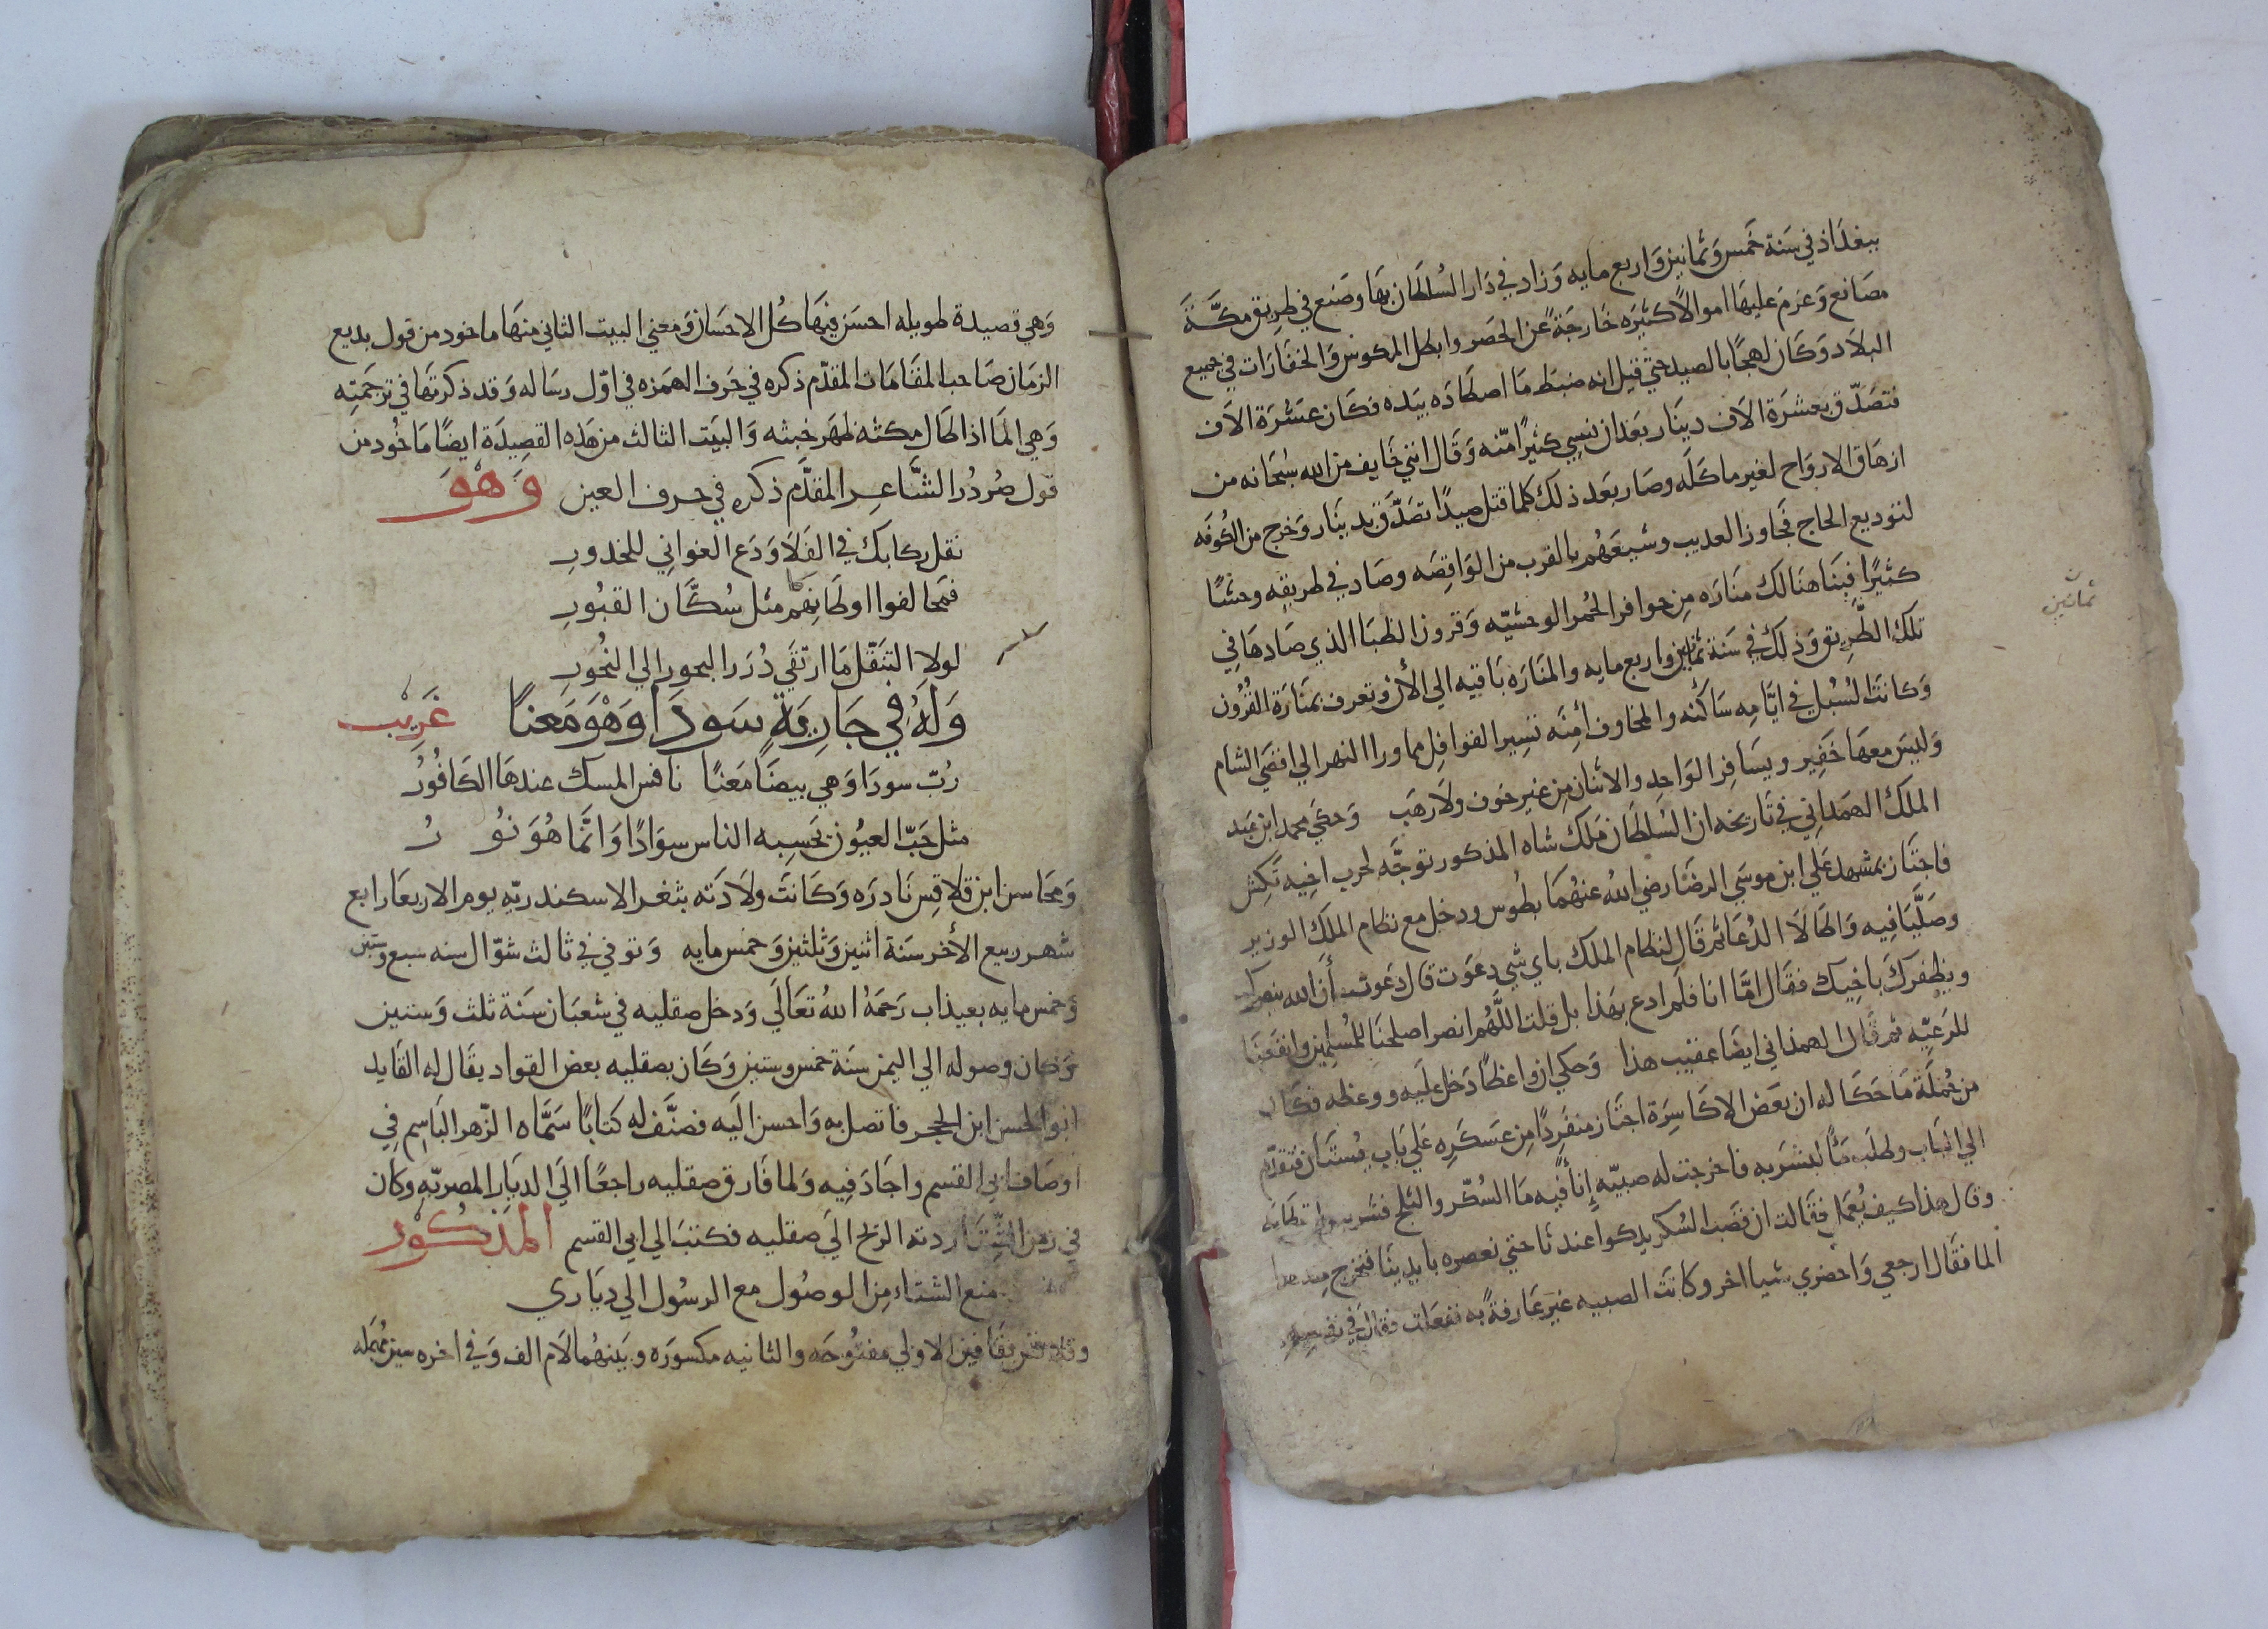 ببغداذ في سَنة خَمس وَثمانين وَاربع مايه وَزاد في دَار السُلطان بهَا وصَنع في طريق مكَّةَ
مصَانع وَغرمَ عليهَا اموالاً كثيرَه خَارجَةً عن الحَصر وابطل المكوس وَالخفَارَات في جميع
البلاَد وَكَان لهجًا بالصيد حتي قيل انه ضبَط مَا اصطَادَه بيَده فكَان عشرَة الاَف
فتصَدّق بعشرَة الاَف دينَار بعَد ان نسي كثيرًا منّه وَقَال انني خَايف من الله سُبحَانه من
ازهَاق الارواح لغير ماكَلَه وصَار بعَد ذلك كلما قتل صيدًا تصَدّق بدينَار وَخرج من الكُوفَه
لتوديع الحاج فجَاوز العديب وشيعَهُم بالقرب من الوَاقصَه وصَاد في طريقه وحشًا
كثيرًا فبنَا هنَالك منَارَه مِن حوافر الحُمر الوحشيّه وَقرون الظبَا الذي صَادهَا في
تلك الطَّرِيق وَذلكَ في سَنة ثمانين واربع مايه والمنَارَه بَاقيه الي الأن وتعرف بمنَارَة القُرُون
وَكانتَ السُبُل في ايَّامِه سَاكنَه والمخاوف أمنِه تَسِير القوافِل مما ورا النهر الي اقصَي الشام
وَليسَ معهَا خَفِير ويسَافِر الوَاحِد والاثنان مِن غير خوف ولاَ رهَب وَحكَي محمد ابن عَبد
الملكَ الهمَداني في تَاريخه ان السُلطَان مَلك شاه المذكور توجَّه لحرب اخِيه تَكِش
فاجتَاز بمَشهد عَلي ابن موسَي الرضَا رضي اللهُ عنهُمَا بطُوس ودخل مع نظام الملكَ الوزير
وصَلَّيَا فيه وَاطالاَ الدُعَا ثم قَال لنظام الملك باي شي دعَوت قال دعَوت أن الله ينصرك
ويظفرك باخِيك فقَال امَّا انا فلَم ادع بهَذا بل قلت اللَّهُم انصر اصلحنَا للمُسلمِين وانفعَنَا
للرَعيّه ثم قَال الهمذاني ايضَا عقيب هذا وَحكي ان واعظاً دَخل علَيه ووعظه فكَان
من جُملَة مَا حَكَا له ان بعَض الاكَاسِرَة اجتَاز منفَردًا مِن عسَكَرِه عَلي بَاب بُستَان فتقدَّم
الي البَاب وطلَب مَأً ليَشربه فاخرجت له صبيّه إناً فيه مَا السُكّر والثلج فشربه واستطابه
وقال هذا كيف يُعمَل فقَالت ان قصَب السُكر يزكوا عندنَا حتي نعصره بايدِينَا فيَخرج منه هذا
الما فقَال ارجعي وَاحضري شيا اخر وكانتَ الصبيه غيَر عَارفةً به ففعَلت فقال في نفسِه
ثمانين
ن
وَهي قصيدة طويله احسَن فيهَا كُل الاحسَان وَمعنَي البيت الثاني منهَا ماخود من قول بديع
الزمَان صَاحب المقَامَات المقدّم ذكره في حَرف الهمَزه في اوّل رسَاله وَقد ذكرتهَا في ترجَمتِه
وَهي المَا اذا طَال مكثه ظهَر خبثه وَالبيَت الثالث من هَذه القصيدَة ايضًا مَاخُود من
قول صُرَدُر الشَّاعِر المقدَّم ذكره في حرف العين وَهْوَ
نقل ركابك في الفَلاَ وَدَع الغواني للخدورِ
فمحَالفوا اوطَانِهَم مثل سُكَّان القبُورِ
لولاِ التنَقّل مَا ارتقَي دُرَر البحور الي النحُورِ
وَلَهُ فِي جَارِيَةٍ سَودَا وَهْوَ مَعناً غَريْب
رُبّ سودَا وَهي بيضَا مَعنًا نافس المسك عندهَا الكَافُورُ
مثل حَبّ العيُون تَحسِبه الناس سوَادًا وَانَّمَا هُوَ نُورُ
وَمحَاسن ابن قلاقِس نَادرَه وَكَانَت ولاَدَته بثغر الاسكندريّه يوم الاربعَا رابع
شهر ربيع الأخر سَنة اثنين وَثلثين وَخمس مايه وَتوفي في ثالث شوّال سنه سبع وستين
وَخمس مايه بعيذاب رَحمَهُ اللهُ تعَالَي وَدخل صقليه في شعبَان سَنَة ثلث وَستين
وَكان وصوله الي اليمن سَنَة خمس وستين وَكَان بصقليه بعض القواد يقَال له القَايد
ابو الحسن ابن الحجر فاتصل به وَاحسن الَيه فصنَّف له كتابًا سَمَّاه الزّهر البَاسِم في
اوصَاف ابي القسم واجَادَ فِيه وَلما فَارق صقليه راجعًا الَي الديَارِ المصريّه وكان
في زمن الشِتَا ردته الريح الَي صقليه فكتبَ الي ابي القسم المذكُوْر
منع الشتاء مِن الوصُول مع الرسُول الي ديَاري
وقلاقس بقَافين الاولي مفتُوحَه والثانيه مكسورَه وبَينهُما لاَم الف وَفي اخره سين مُهمَله